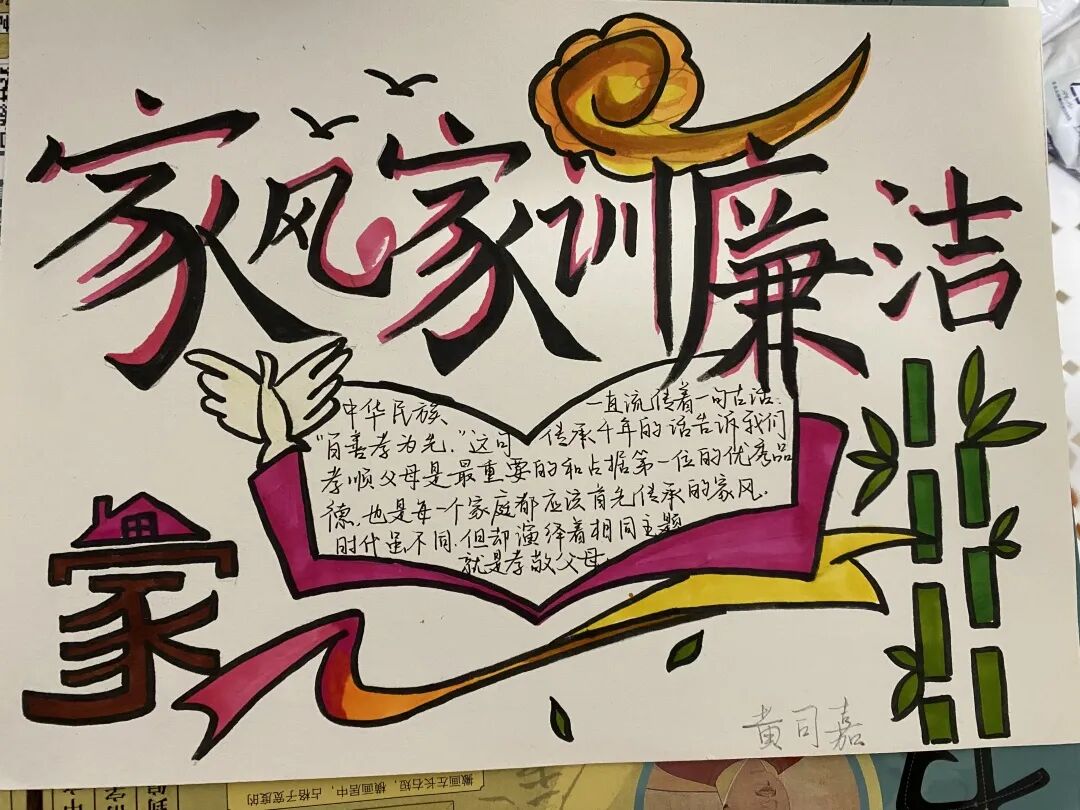 家风家训廉洁
中华民族 一直流传着一句古话:
"百善孝为先."这句 传承千年的话告诉我们
孝顺父母是最重要的和占据第一位的优秀品
德,也是每一个家庭都应该首先传承的家风.
时代虽不同.但却演绎着相同主题
就是孝敬父母.
家
黄司嘉
撇画左长右短,
横画居中,占格子宽度的